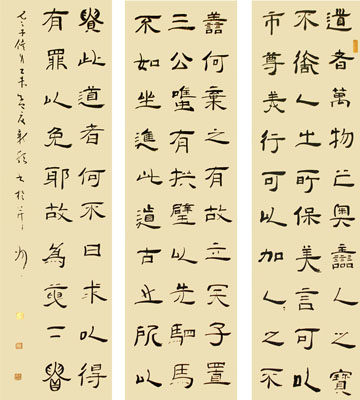 道者萬物之奧譱人之寶
不譱人之所保美言可以
市尊美行可以加人之不
譱何棄之有故立天子置
三公雖有拱璧以先駟馬
不如坐進此道古之所以
貴此道者何不曰求以得
有罪以免耶故為天下貴